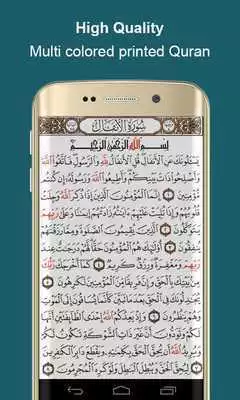 High Quality
Multi colored printed Quran
سُورَةُ الأَنفَال
بِسْمِ ٱللَّهِ ٱلرَّحْمَٰنِ ٱلرَّحِيمِ
يَسْـَٔلُونَكَ عَنِ ٱلْأَنفَالِ قُلِ ٱلْأَنفَالُ لِلَّهِ وَٱلرَّسُولِ فَٱتَّقُوا۟ ٱللَّهَ
وَأَصْلِحُوا۟ ذَاتَ بَيْنِكُمْ وَأَطِيعُوا۟ ٱللَّهَ وَرَسُولَهُۥٓ إِن كُنتُم
مُّؤْمِنِينَ ١ إِنَّمَا ٱلْمُؤْمِنُونَ ٱلَّذِينَ إِذَا ذُكِرَ ٱللَّهُ وَجِلَتْ
قُلُوبُهُمْ وَإِذَا تُلِيَتْ عَلَيْهِمْ ءَايَٰتُهُۥ زَادَتْهُمْ إِيمَٰنًا وَعَلَىٰ
رَبِّهِمْ يَتَوَكَّلُونَ ٢ ٱلَّذِينَ يُقِيمُونَ ٱلصَّلَوٰةَ وَمِمَّا رَزَقْنَٰهُمْ
يُنفِقُونَ ٣ أُو۟لَٰٓئِكَ هُمُ ٱلْمُؤْمِنُونَ حَقًّا لَّهُمْ دَرَجَٰتٌ عِندَ
رَبِّهِمْ وَمَغْفِرَةٌ وَرِزْقٌ كَرِيمٌ ٤ كَمَآ أَخْرَجَكَ رَبُّكَ
مِنۢ بَيْتِكَ بِٱلْحَقِّ وَإِنَّ فَرِيقًا مِّنَ ٱلْمُؤْمِنِينَ لَكَٰرِهُونَ ٥
يُجَٰدِلُونَكَ فِى ٱلْحَقِّ بَعْدَ مَا تَبَيَّنَ كَأَنَّمَا يُسَاقُونَ إِلَى ٱلْمَوْتِ
وَهُمْ يَنظُرُونَ ٦ وَإِذْ يَعِدُكُمُ ٱللَّهُ إِحْدَى ٱلطَّآئِفَتَيْنِ أَنَّهَا
لَكُمْ وَتَوَدُّونَ أَنَّ غَيْرَ ذَاتِ ٱلشَّوْكَةِ تَكُونُ لَكُمْ وَيُرِيدُ
ٱللَّهُ أَن يُحِقَّ ٱلْحَقَّ بِكَلِمَٰتِهِۦ وَيَقْطَعَ دَابِرَ ٱلْكَٰفِرِينَ ٧
لِيُحِقَّ ٱلْحَقَّ وَيُبْطِلَ ٱلْبَٰطِلَ وَلَوْ كَرِهَ ٱلْمُجْرِمُونَ ٨